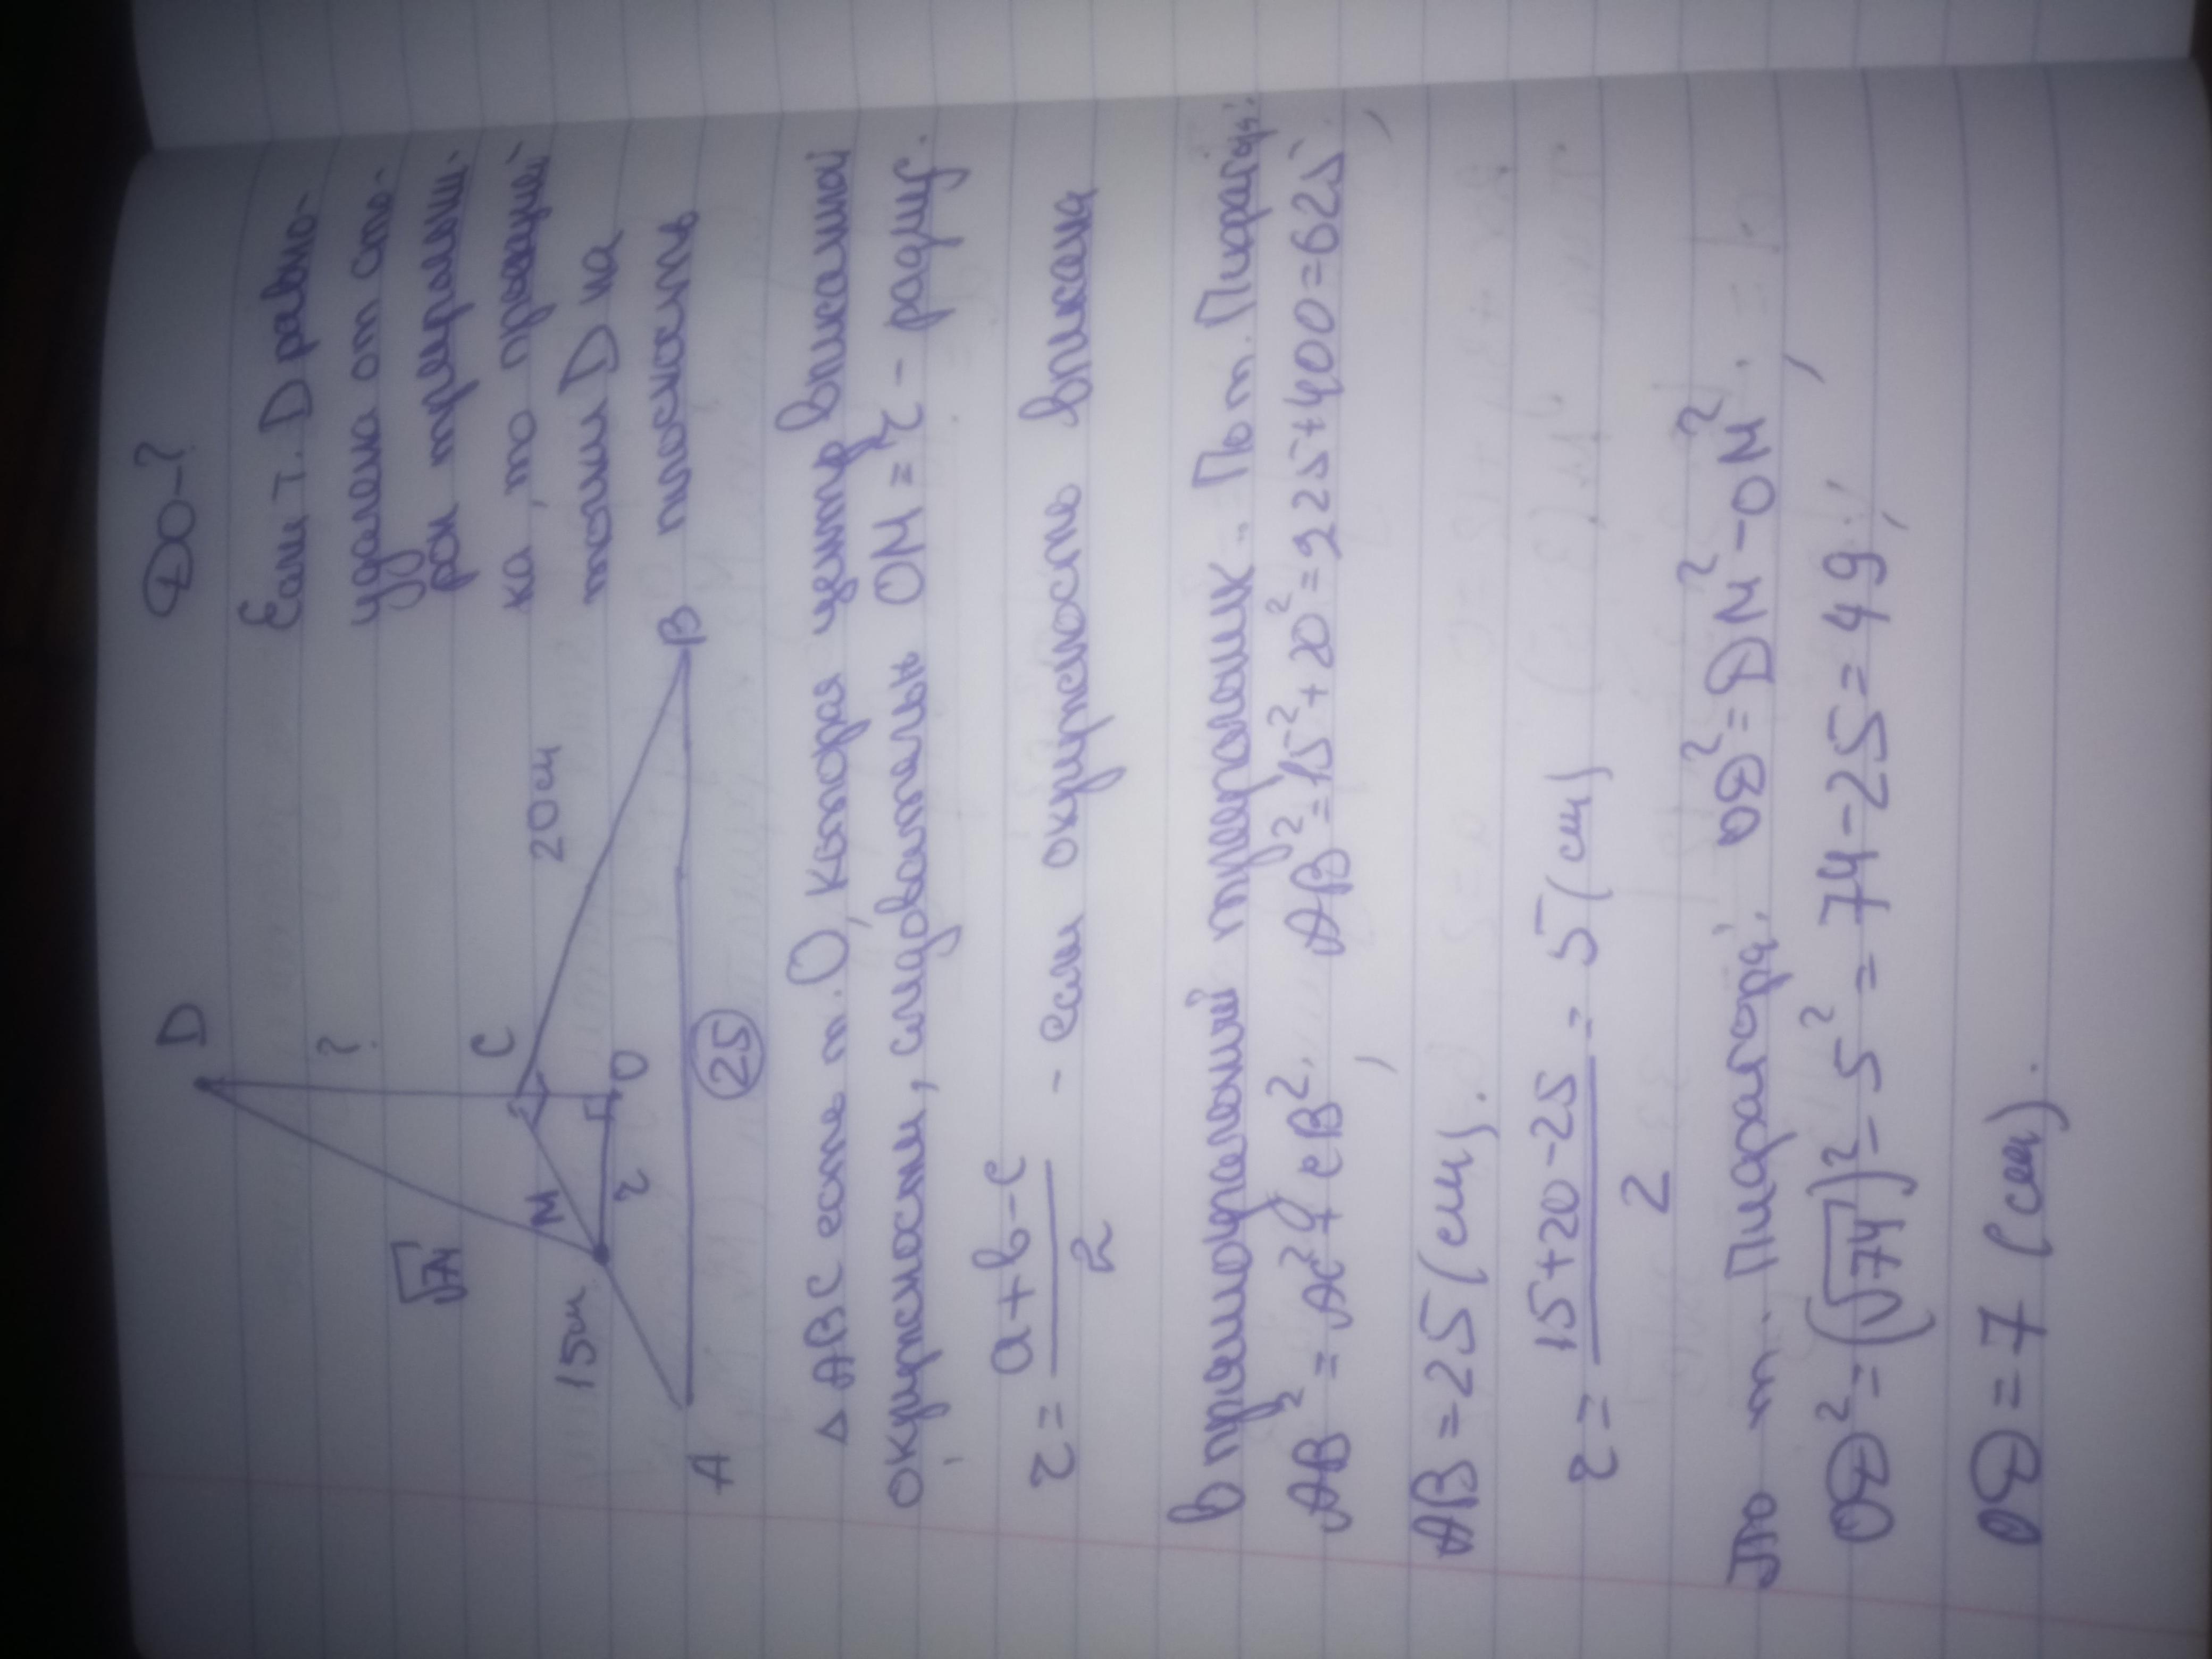 DO-?
D
?
√74
C
20 см
M
15см
r
O
A
B
25
Если т. D равно-
удалена от сто-
рон треугольни-
ка, то проекцией
точки D на
плоскость
△ ABC есть т. O, которая центр вписанной
окружности, следовательно OM = r - радиус.
r = a+b-c / 2 - если окружность вписана
в прямоугольный треугольник. По т. Пифагора:
AB² = AC² + CB²; AB² = 15² + 20² = 225 + 400 = 625;
AB = 25 (см).
r = 15+20-25 / 2 = 5 (см)
По т. Пифагора: OD² = DM² - OM²;
OD² = (√74)² - 5² = 74 - 25 = 49;
OD = 7 (см).